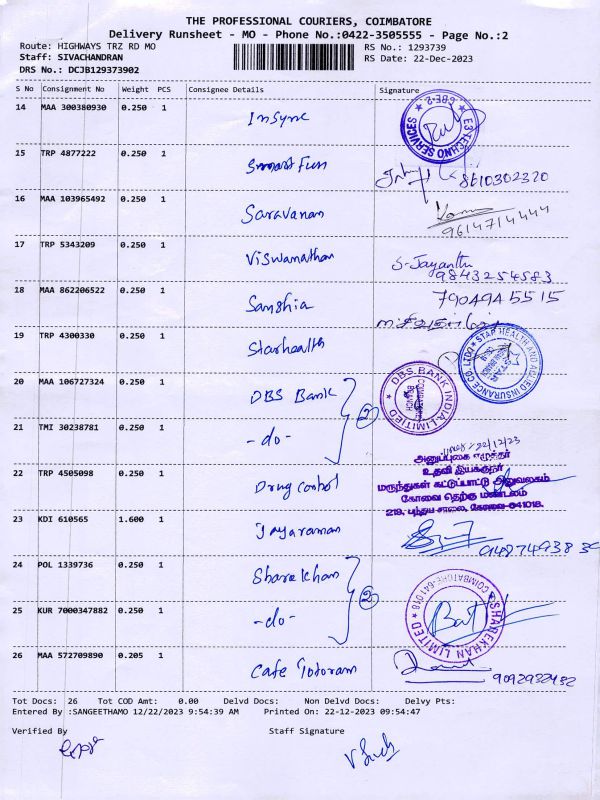 THE PROFESSIONAL COURIERS, COIMBATORE
Delivery Runsheet - MO - Phone No.:0422-3505555 - Page No.:2
Route: HIGHWAYS TRZ RD MO RS No.: 1293739
Staff: SIVACHANDRAN RS Date: 22-Dec-2023
DRS No.: DCJB129373902
S No Consignment No Weight PCS Consignee Details Signature
14 MAA 300380930 0.250 1 Insync
E3 TECHNO SERVICES * CBE-2 *
15 TRP 4877222 0.250 1 Smart Fun 8610302320
16 MAA 103965492 0.250 1 Saravanan 9614714444
17 TRP 5343209 0.250 1 Viswanathan S-Jayanthi
9843254583
18 MAA 862206522 0.250 1 Sanghia 7904945515
19 TRP 4300330 0.250 1 Starhealth
STAR HEALTH AND ALLIED INSURANCE CO. LTD
20 MAA 106727324 0.250 1 DBS Bank
DBS BANK INDIA LIMITED * COIMBATORE BRANCH
21 TMI 30238781 0.250 1 -do- 2
22/12/23
22 TRP 4505098 0.250 1 Drug control
அனுப்புகை எழுத்தர்
உதவி இயக்குநர்
மருந்துகள் கட்டுப்பாட்டு அலுவலகம்
கோவை தெற்கு மண்டலம்
219, பந்தய சாலை, கோவை-641018.
23 KDI 610565 1.600 1 Jayaraman
24 POL 1339736 0.250 1 Sharekhan
SHAREKHAN LIMITED * COIMBATORE-641 018 *
25 KUR 7000347882 0.250 1 -do- 2
26 MAA 572709890 0.205 1 Cafe Totoram 9092932432
Tot Docs: 26 Tot COD Amt: 0.00 Delvd Docs: Non Delvd Docs: Delvy Pts:
Entered By :SANGEETHAMO 12/22/2023 9:54:39 AM Printed On: 22-12-2023 09:54:47
Verified By Staff Signature